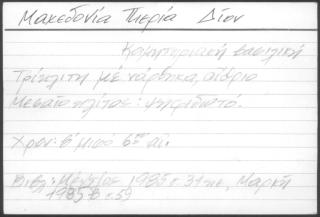 Μακεδονία Πιερία Δίον
Κοιμητηριακή βασιλική
Τρίκλιτη μέ νάρθηκα, αίθριο
Μεσαίο κλίτος: ψηφιδωτό.
Χρον: β' μισό 6ου αι.
Βιβλ: 1985 σ. 34, Μαρκή
1985 β σ. 59